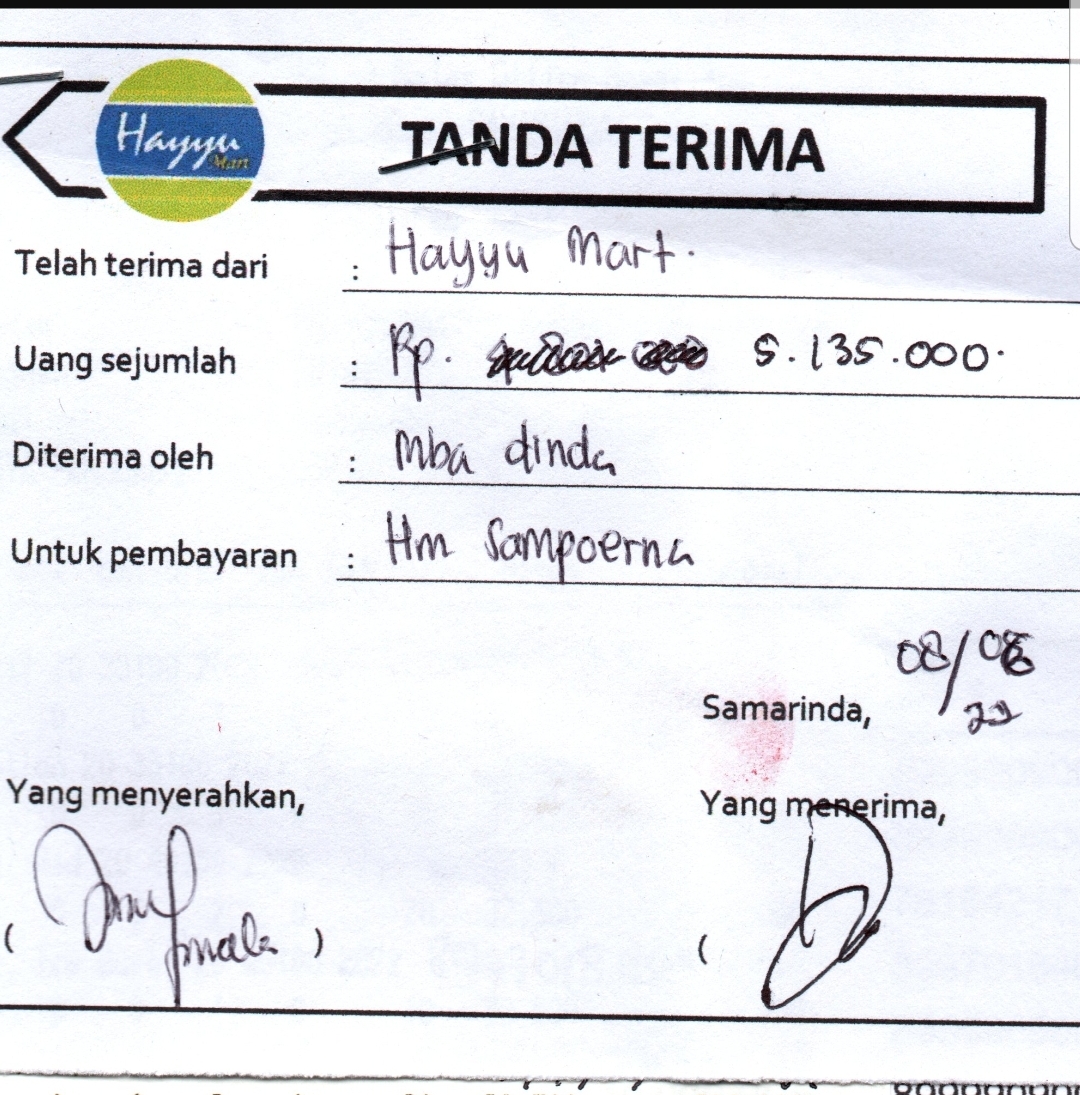 Hayyu
Mart
TANDA TERIMA
Telah terima dari : Hayyu Mart.
Uang sejumlah : Rp. 5.135.000.
Diterima oleh : Mba dinda
Untuk pembayaran : Hm Sampoerna
08/08
Samarinda, 22
Yang menyerahkan,
Yang menerima,
( )
(